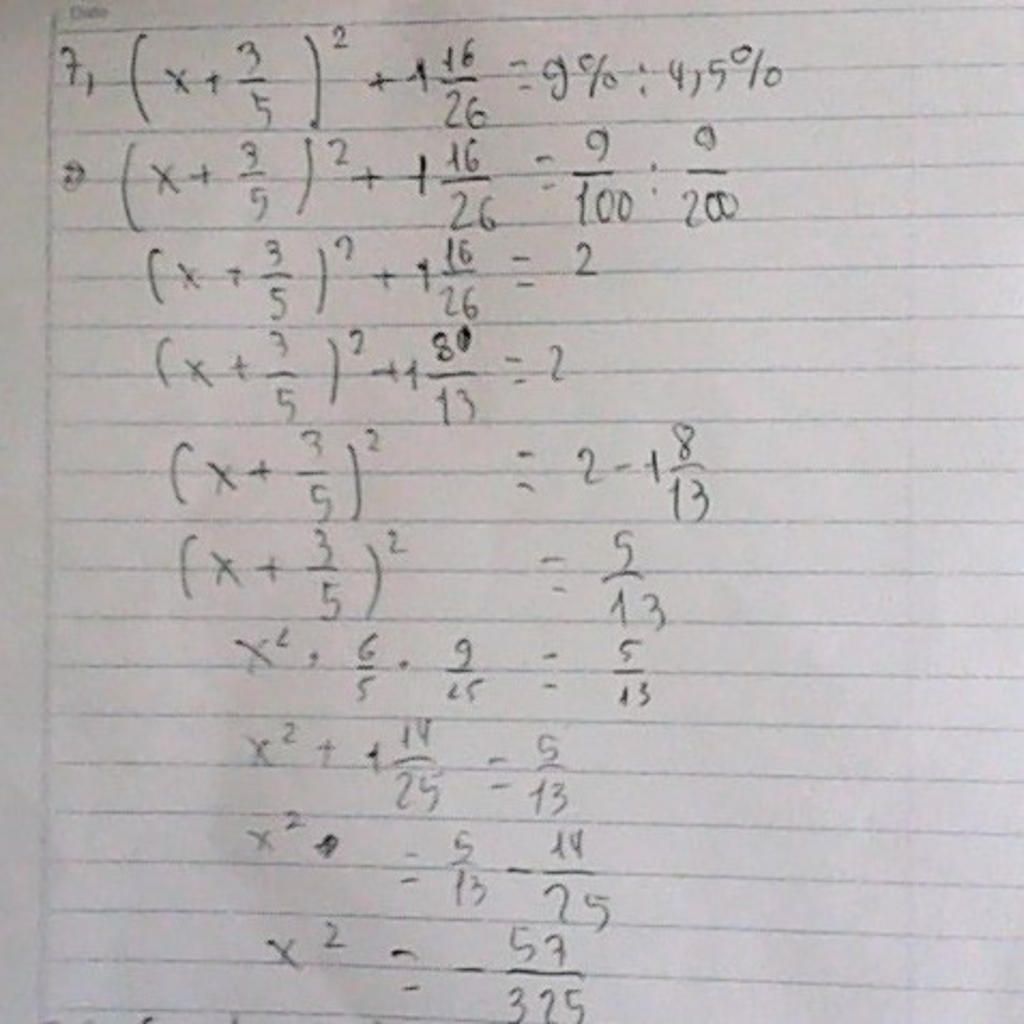 Date
7, (x + 3/5)² + 1 16/26 = 9% : 4,5%
⇒ (x + 3/5)² + 1 16/26 = 9/100 : 9/200
(x + 3/5)² + 1 16/26 = 2
(x + 3/5)² + 1 8/13 = 2
(x + 3/5)² = 2 - 1 8/13
(x + 3/5)² = 5/13
x² + 6/5 + 9/25 = 5/13
x² + 1 14/25 = 5/13
x² = 5/13 - 14/25
x² = - 57/325